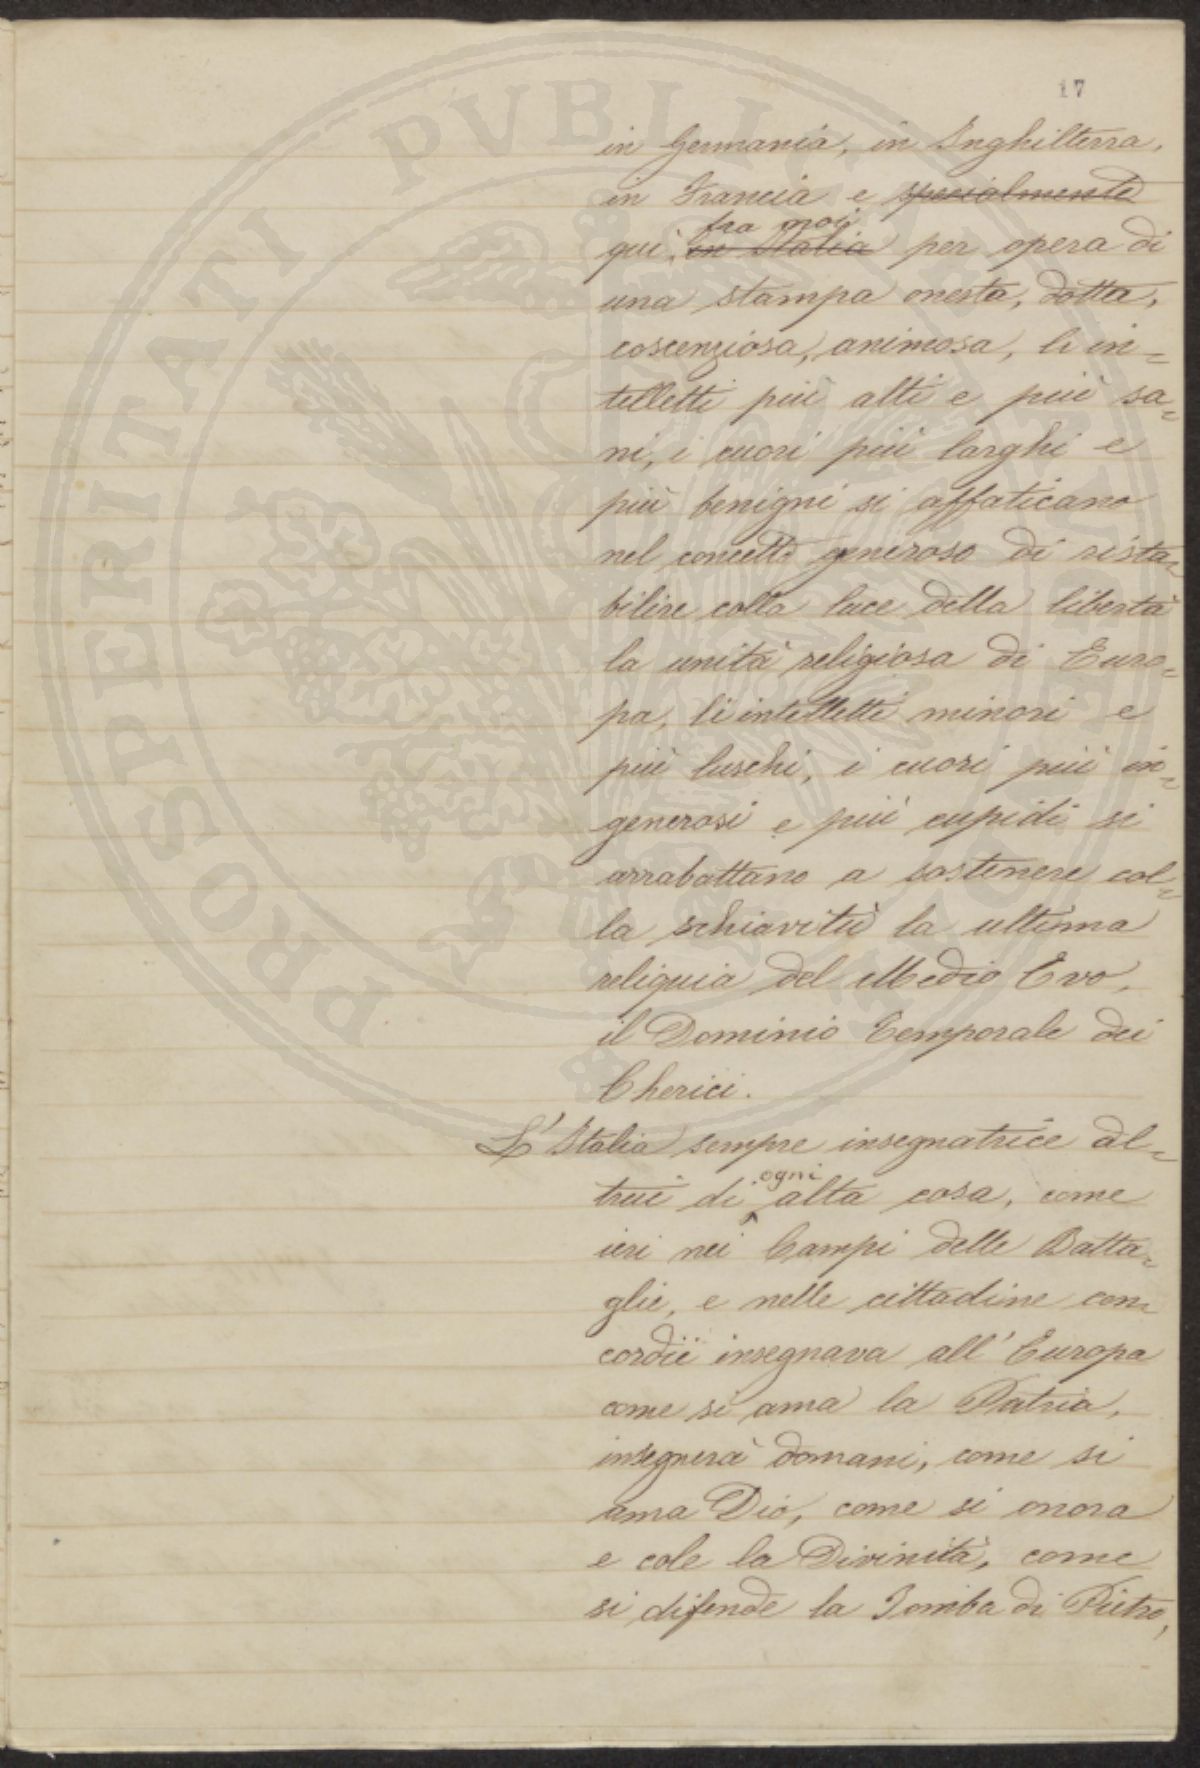 17
in Germania, in Inghilterra,
in Francia e specialmente
fra noi
quì, in Italia per opera di
una stampa onesta, dotta,
coscenziosa, animosa, li in=
telletti più alti e più sa=
ni, i cuori più larghi e
più benigni si affaticano
nel concetto generoso di rista=
bilire colla luce della libertà
la unità religiosa di Euro=
pa, li intelletti minori e
più luschi, i cuori più in=
generosi e più cupidi si
arrabattano a sostenere col=
la schiavitù la ultima
reliquia del Medio Evo,
il Dominio Temporale dei
Cherici.
L'Italia sempre insegnatrice al=
ogni
trui di alta cosa, come
ieri nei Campi delle Batta=
glie, e nelle cittadine con=
cordie insegnava all'Europa
come si ama la Patria,
insegnerà domani, come si
ama Dio, come si onora
e cole la Divinità, come
si difende la Tomba di Pietro,
PROSPERITATI PVBLICAE